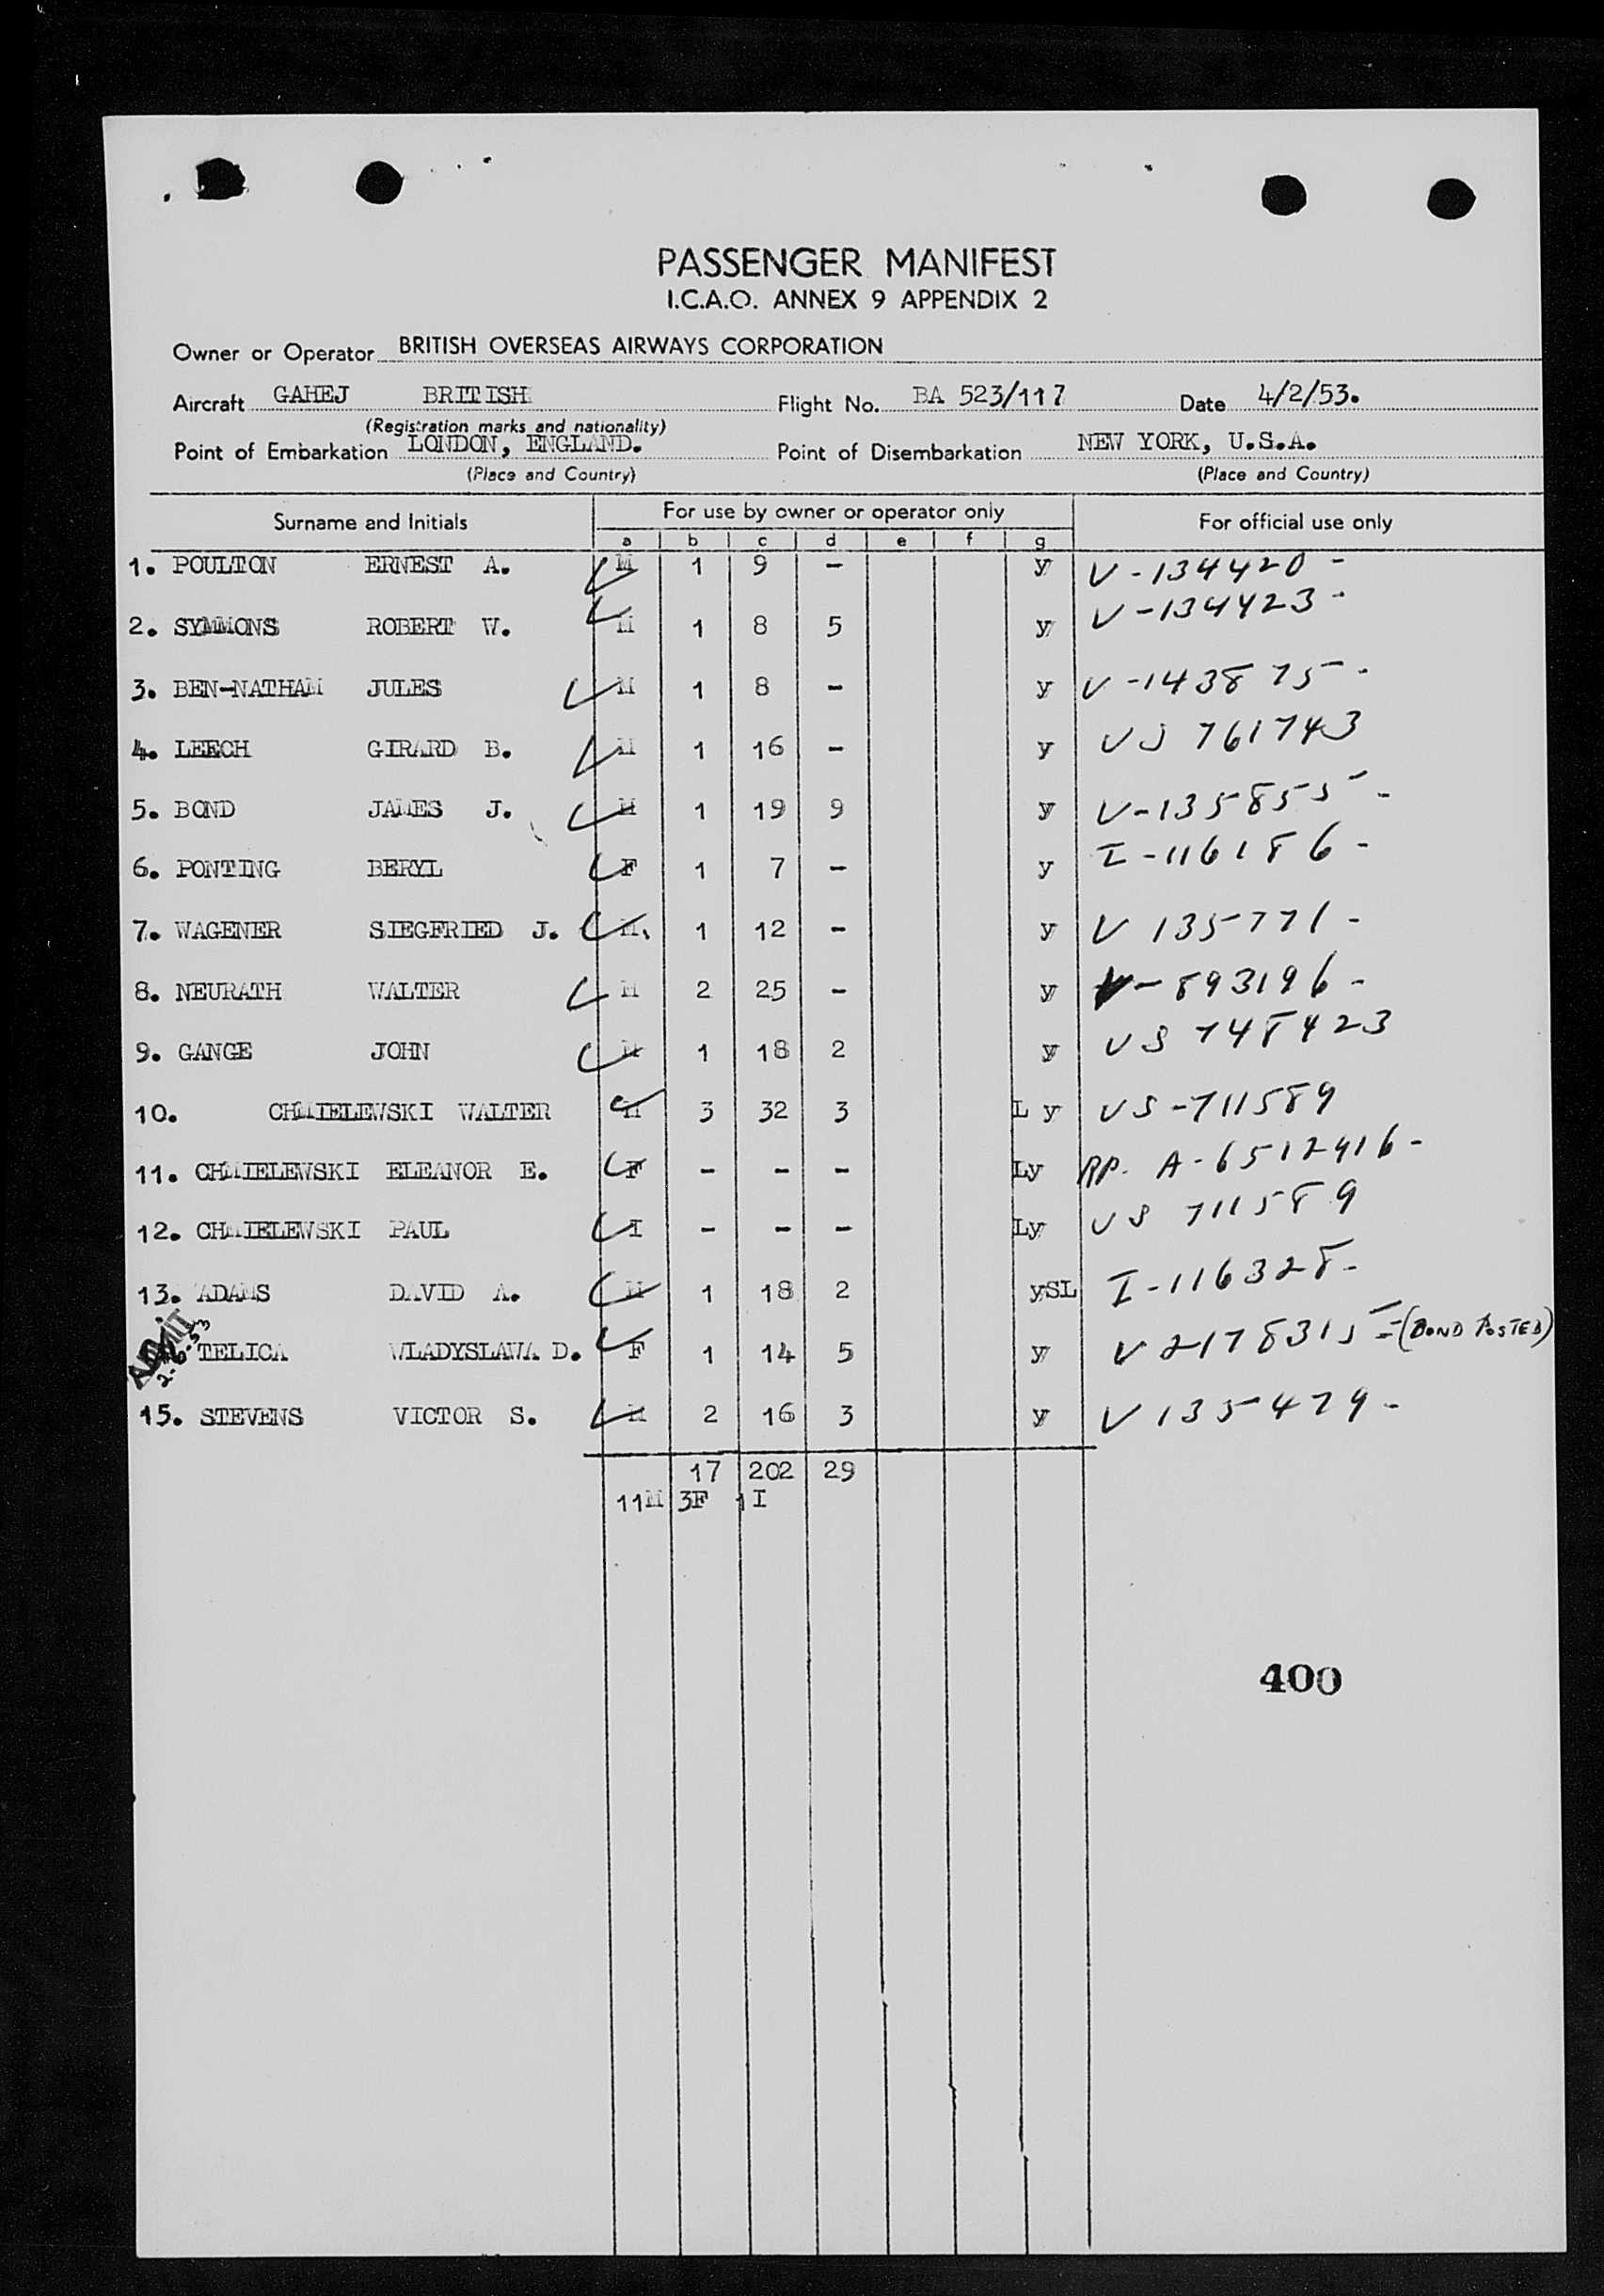 PASSENGER MANIFEST
I.C.A.O. ANNEX 9 APPENDIX 2
Owner or Operator BRITISH OVERSEAS AIRWAYS CORPORATION
Aircraft GAHEJ BRITISH Flight No. BA 523/117 Date 4/2/53.
(Registration marks and nationality)
Point of Embarkation LONDON, ENGLAND. Point of Disembarkation NEW YORK, U.S.A.
(Place and Country) (Place and Country)
Surname and Initials For use by owner or operator only For official use only
a b c d e f g
1. POULTON ERNEST A. M 1 9 - y V-134420 -
2. SYMMONS ROBERT W. M 1 8 5 y V-134423 -
3. BEN-NATHAM JULES M 1 8 - y V-143875 -
4. LEECH GIRARD B. M 1 16 - y US 761743
5. BOND JAMES J. M 1 19 9 y V-135855 -
6. PONTING BERYL F 1 7 - y I-116186 -
7. WAGENER SIEGFRIED J. M. 1 12 - y V 135771 -
8. NEURATH WALTER M 2 25 - y V-893196 -
9. GANGE JOHN M 1 18 2 y US 748423
10. CHMIELEWSKI WALTER M 3 32 3 L y US-711589
11. CHMIELEWSKI ELEANOR E. F - - - Ly RP. A-6512916 -
12. CHMIELEWSKI PAUL I - - - Ly US 711589
13. ADAMS DAVID A. M 1 18 2 ySL I-116328 -
ADMIT
TELICA WLADYSLAWA D. F 1 14 5 y V 2178315 = (BOND POSTED)
15. STEVENS VICTOR S. M 2 16 3 y V 135479 -
17 202 29
11M 3F 1I
400